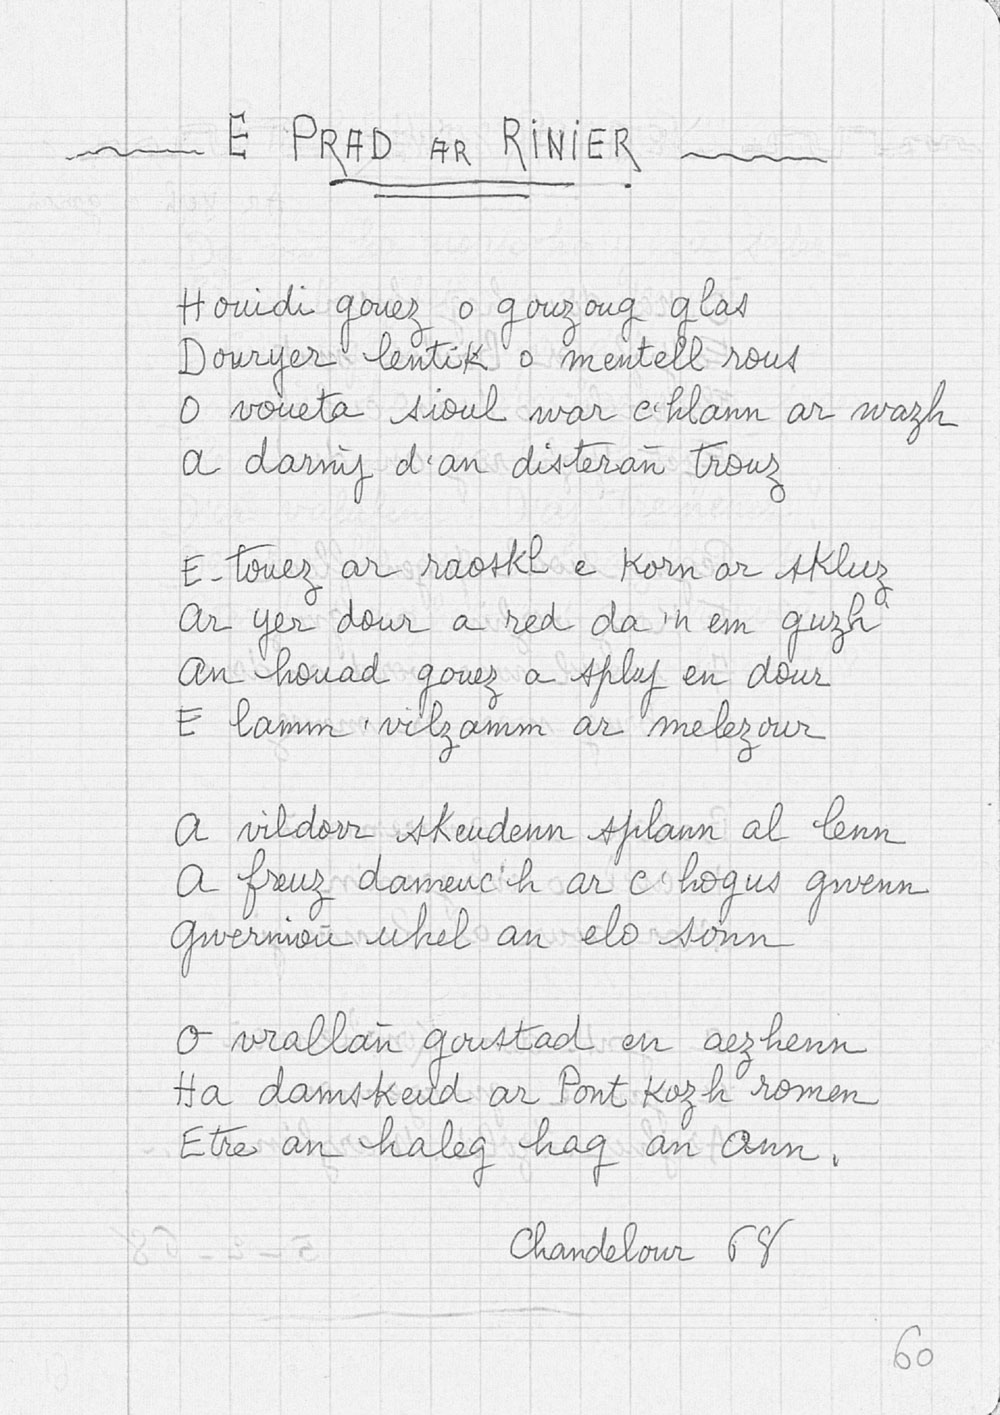 E PRAD AR RINIER
Houidi gouez o gouzoug glas
Douryer lentik o mentell rous
O voueta sioul war c'hlann ar wazh
A darnij d'an disterañ trouz
E-touez ar raoskl e korn ar skluz
Ar yer dour a red da 'n em guzh
An houad gouez a spluj en dour
E lamm 'vilzamm ar melezour
A vildorr skeudenn splann al lenn
A freuz dameuc'h ar c'hogus gwenn
Gwernioù uhel an elo sonn
O vrallañ goustad en aezhenn
Ha damskeud ar Pont Kozh romen
Etre an haleg hag an Onn.
Chandelour 68
60